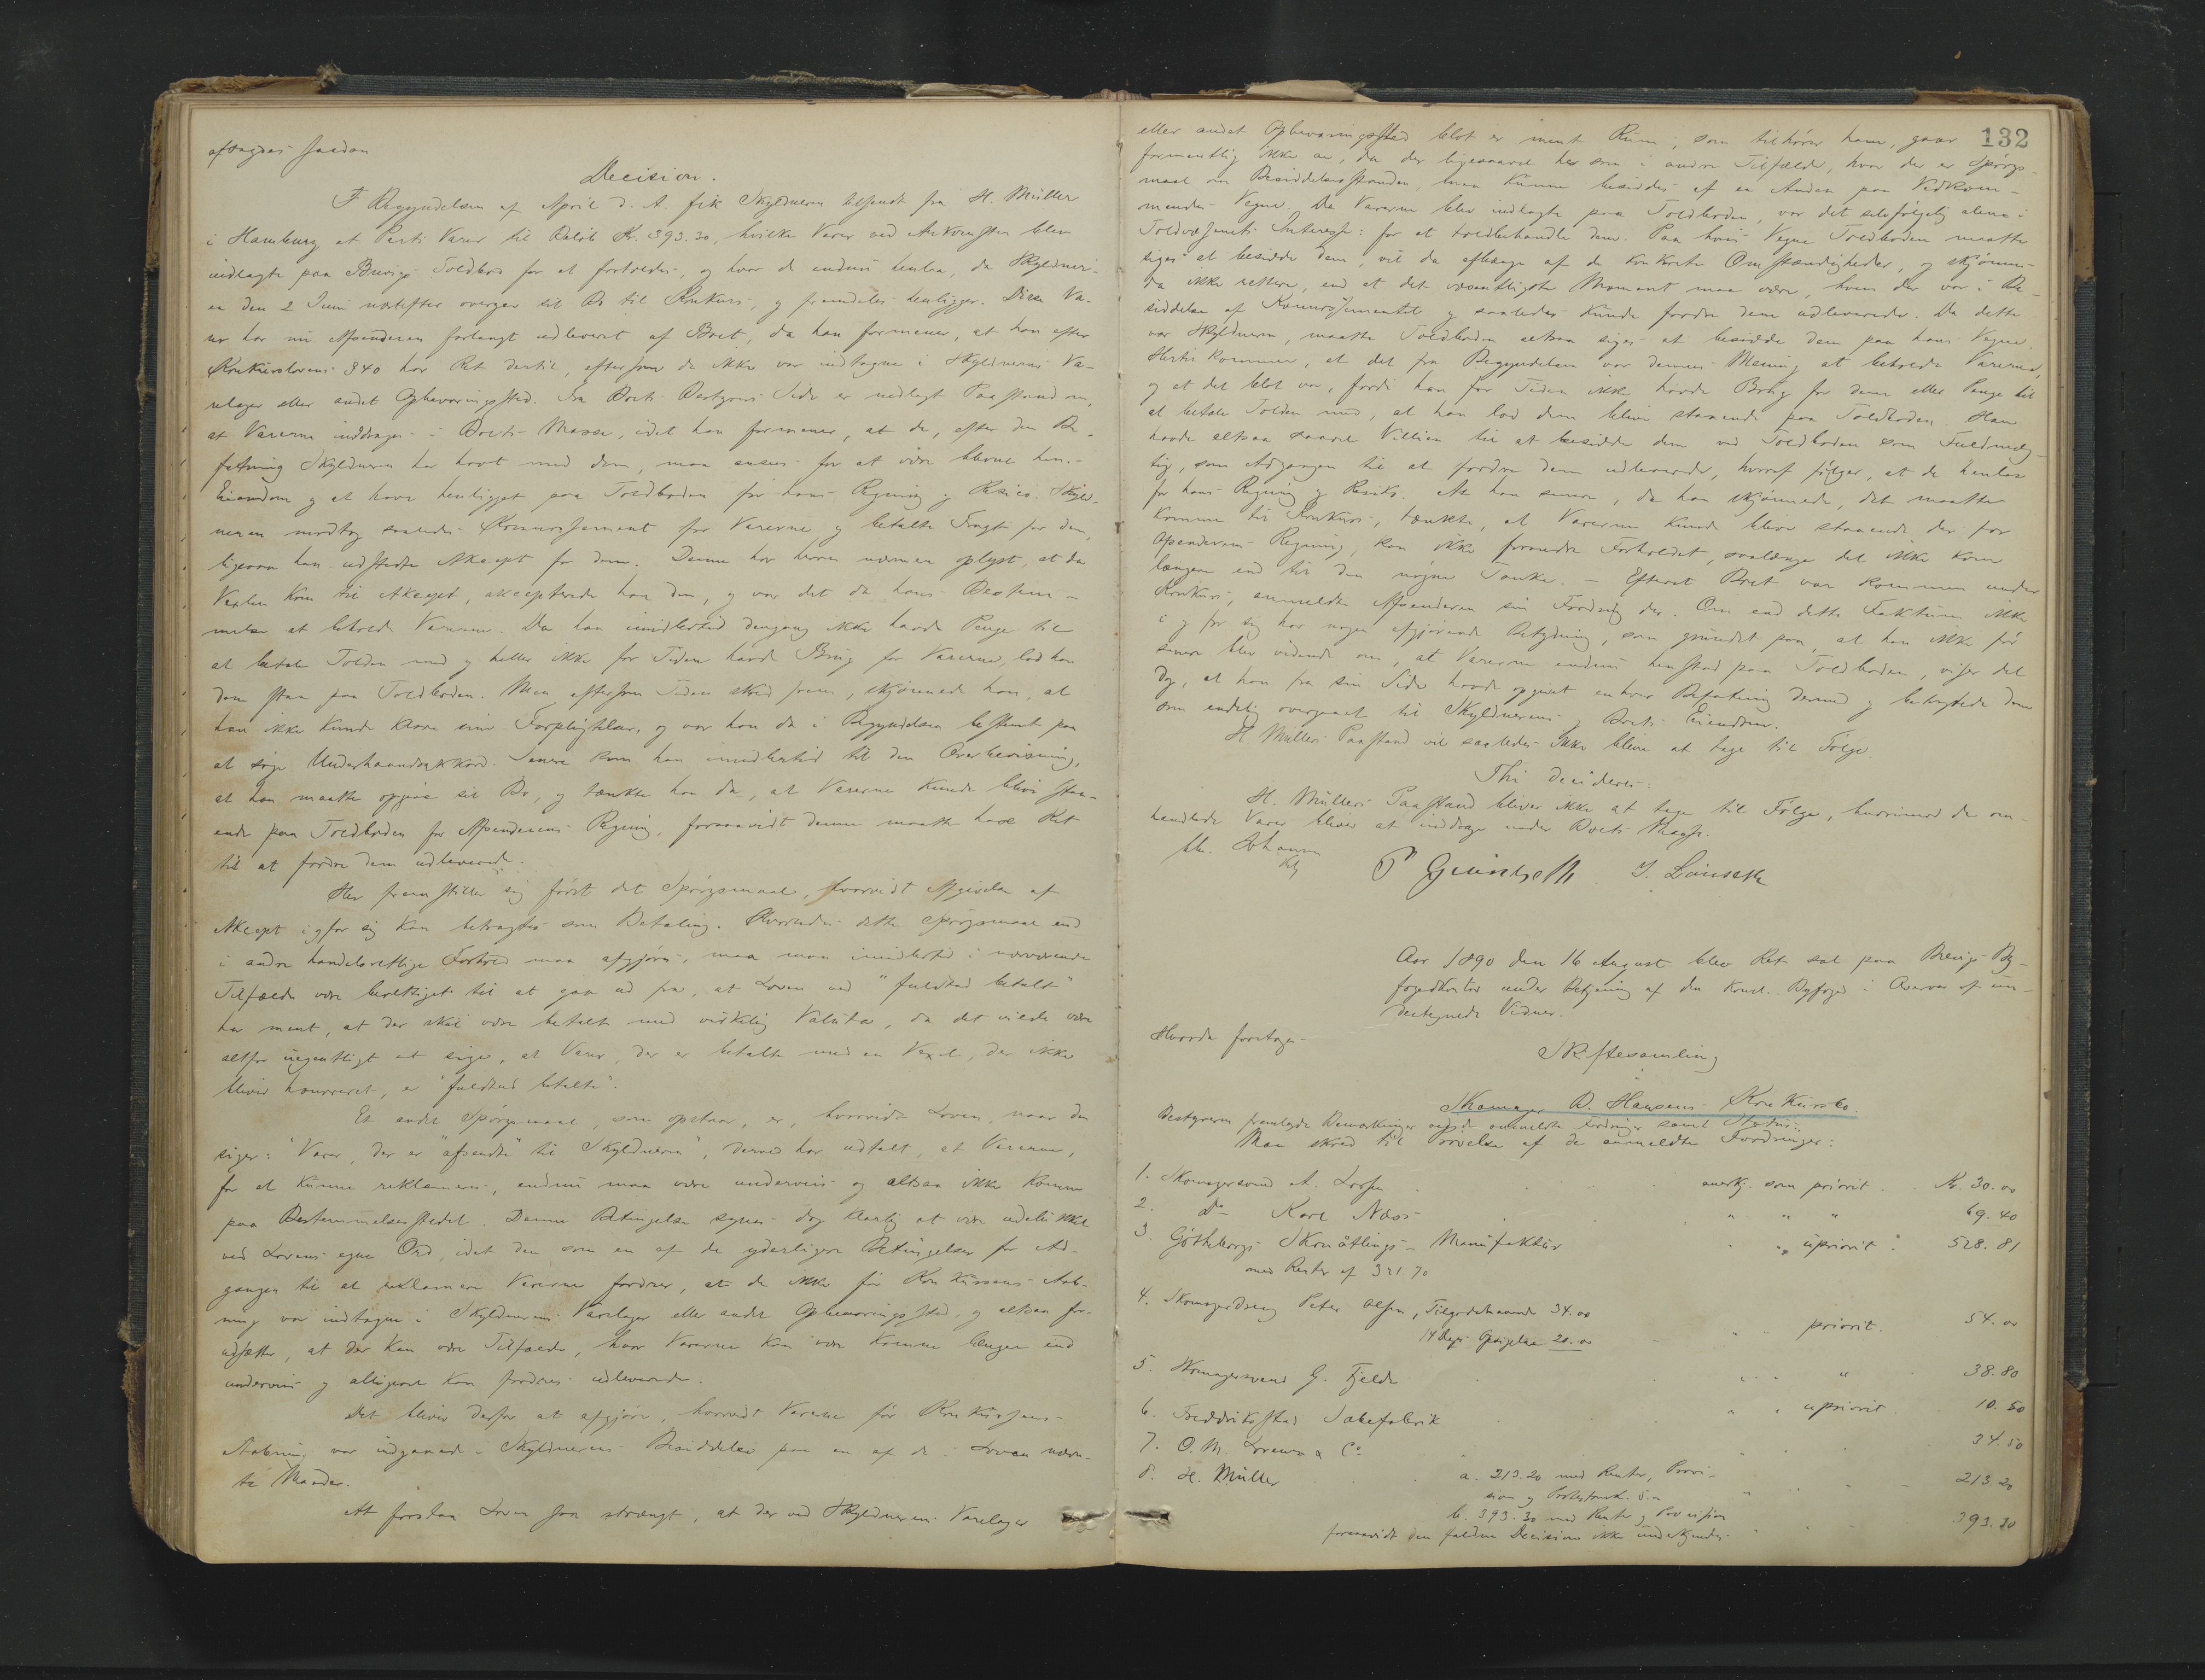 afsagdes saadan
Decision.
I Begyndelsen af April d. A. fik Skyldneren tilsendt fra H. Müller
i Hamburg et Parti Varer til Beløb Kr. 393.30, hvilke Varer ved Ankomsten blev
indlagte paa Brevigs Toldbod for at fortoldes, og hvor de endnu henlaa, da Skyldner-
en den 2 Juni næstefter overgav sit Bo til Konkurs, og fremdeles henligger. Disse Va-
rer har nu Afsenderen forlangt udleveret af Boet, da han formener, at han efter
Konkurslovens §40 har Ret dertil, eftersom de ikke var indtagne i Skyldnerens Va-
relager eller andet Opbevaringssted. Fra Boets Bestyrers Side er nedlagt Paastand om,
at Varerne inddrages i Boets Masse, idet han formener, at de, efter den Be-
fatning Skyldneren har havt med dem, maa ansees for at være blevne hans
Eiendom og at have henligget paa Toldboden for hans Regning og Risico. Skyld-
neren modtog saaledes Konnossement for Varerne og betalte Fragt for dem,
ligesom han udstedte Akcept for dem. Denne har herom nærmere oplyst, at da
Vexlen kom til Akcept, akcepterede han den, og var det da hans Bestem-
melse at beholde Varerne. Da han imidlertid dengang ikke havde Penge til
at betale Tolden med og heller ikke for Tiden havde Brug for Varerne, lod han
dem staa paa Toldboden. Men eftersom Tiden skred frem, skjønnede han, at
han ikke kunde klare sine Forpligtelser, og var han da i Begyndelsen bestemt paa
at søge Underhaandsakkord. Senere kom han imidlertid til den Overbevisning,
at han maatte opgive sit Bo, og tænkte han da, at Varerne kunde blive staa-
ende paa Toldboden for Afsenderens Regning, forsaavidt denne maatte have Ret
til at fordre dem udleverede.
Her fremstiller sig først det Spørgsmaal, hvorvidt Afgivelse af
Akcept i og for sig kan betragtes som Betaling. Hvorledes dette Spørgsmaal end
i andre handelsretlige Forhold maa afgjøres, maa man imidlertid i nærværende
Tilfælde være berettiget til at gaa ud fra, at Loven ved "fuldtud betalt"
har ment, at der skal være betalt med virkelig Valuta, da det vilde være
altfor uegentligt at sige, at Varer, der er betalte med en Vexel, der ikke
bliver honoreret, er "fuldtud betalte".
Et andet Spørgsmaal, som opstaar, er, hvorvidt Loven, naar den
siger: "Varer, der er "afsendte" til Skyldneren", derved har udtalt, at Varerne,
for at kunne reklameres, endnu maa være underveis og altsaa ikke komne
paa Bestemmelsesstedet. Denne Betingelse synes dog klarlig at være udelukket
ved Lovens egne Ord, idet den som en af de yderligere Betingelser for Ad-
gangen til at reklamere Varerne fordrer, at de ikke før Konkursens Aab-
ning var indtagne i Skyldnerens Varelager eller andet Opbevaringssted, og altsaa for-
udsætter, at der kan være Tilfælde, hvor Varerne kan være komne længer end
underveis og alligevel kan fordres udleverede.
Det bliver derfor at afgjøre, hvorvidt Varerne før Konkursens
Aabning var indgaaede i Skyldnerens Besiddelse paa en af de i Loven nævn-
te Maader.
At forstaa Loven saa strengt, at der ved Skyldnerens Varelager
132
eller andet Opbevaringssted blot er ment Rum, som tilhører ham, gaar
formentlig ikke an, da der ligesaavel her som i andre Tilfælde, hvor der er Spørgs-
maal om Besiddelsesstanden, maa kunne besiddes af en Anden paa Vedkom-
mendes Vegne. Da Varerne blev indlagte paa Toldboden, var det selvfølgelig alene i
Toldvæsenets Interesse: for at toldbehandle dem. Paa hvis Vegne Toldboden maatte
siges at besidde dem, vil da afhænge af de konkrete Omstændigheder, og skjønnes
da ikke rettere, end at det væsentligste Moment maa være, hvem der var i Be-
siddelse af Konnossementet og saaledes kunde fordre dem udleverede. Da dette
var Skyldneren, maatte Toldboden altsaa siges at besidde dem paa hans Vegne.
Hertil kommer, at det fra Begyndelsen var dennes Mening at beholde Varerne,
og at det blot var, fordi han for Tiden ikke havde Brug for dem eller Penge til
at betale Tolden med, at han lod dem blive staaende paa Toldboden. Han
havde altsaa saavel Villien til at besidde dem ved Toldboden som Fuldmæg-
tig, som Adgangen til at fordre dem udleverede, hvoraf følger, at de henlaa
for hans Regning og Risiko. At han senere, da han skjønnede, det maatte
komme til Konkurs, tænkte, at Varerne kunde blive staaende der for
Afsenderens Regning, kan ikke forandre Forholdet, saalænge det ikke kom
længere end til den nøgne Tanke. — Efterat Boet var kommen under
Konkurs, anmeldte Afsenderen sin Fordring der. Om end dette Faktum ikke
i og for sig har nogen afgjørende Betydning, som grundet paa, at han ikke før
senere blev vidende om, at Varerne endnu henstod paa Toldboden, viser det
dog, at han fra sin Side havde opgivet enhver Befatning dermed og betragtede dem
som endelig overgaaet til Skyldnerens og Boets Eiendom.
H Müllers Paastand vil saaledes ikke blive at tage til Følge.
Thi decideres:
H. Müllers Paastand bliver ikke at tage til Følge, hvorimod de om-
handlede Varer bliver at inddrage under Boets Masse.
Aar 1890 den 16 August blev Ret sat paa Brevigs By-
fogedkontor under Betjening af den konst. Byfoged i Overvær af un-
dertegnede Vidner.
Hvorda foretoges
Skiftesamling
i
Skomager D. Hansens Konkursbo.
Bestyreren fremlagde Bemærkninger ved de anmeldte Fordringer samt Status.
Man skred til Prøvelse af de anmeldte Fordringer:
1. Skomagersvend A. Larsen anerkj. som priorit. Kr. 30.00
2. Do Karl Næss " " " 69.40
3. Götheborgs Skonåtlings-Manufaktur " " upriorit. 528.81
med Renter af 321.70
4. Skomagerdreng Peter Olsen, Tilgodehavende 34.00
14 Dages Opsigelse 20.00 " priorit. 54.00
5. Skomagersvend G. Fjelde " " 38.80
6. Fredrikstad Sæbefabrik " " upriorit. 10.50
7. O. M. & Co 34.50
8. H. Müller a. 213.20 med Renter, Provi- 213.20
sion og
b. 393.30 med Renter og Provision 393.30
forsaavidt den faldne Decision ikke underkjendes